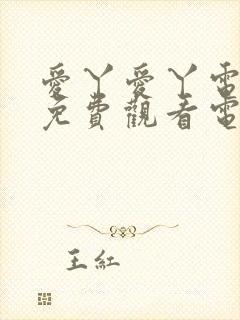 愛丫愛丫電
免費觀看電
王紅